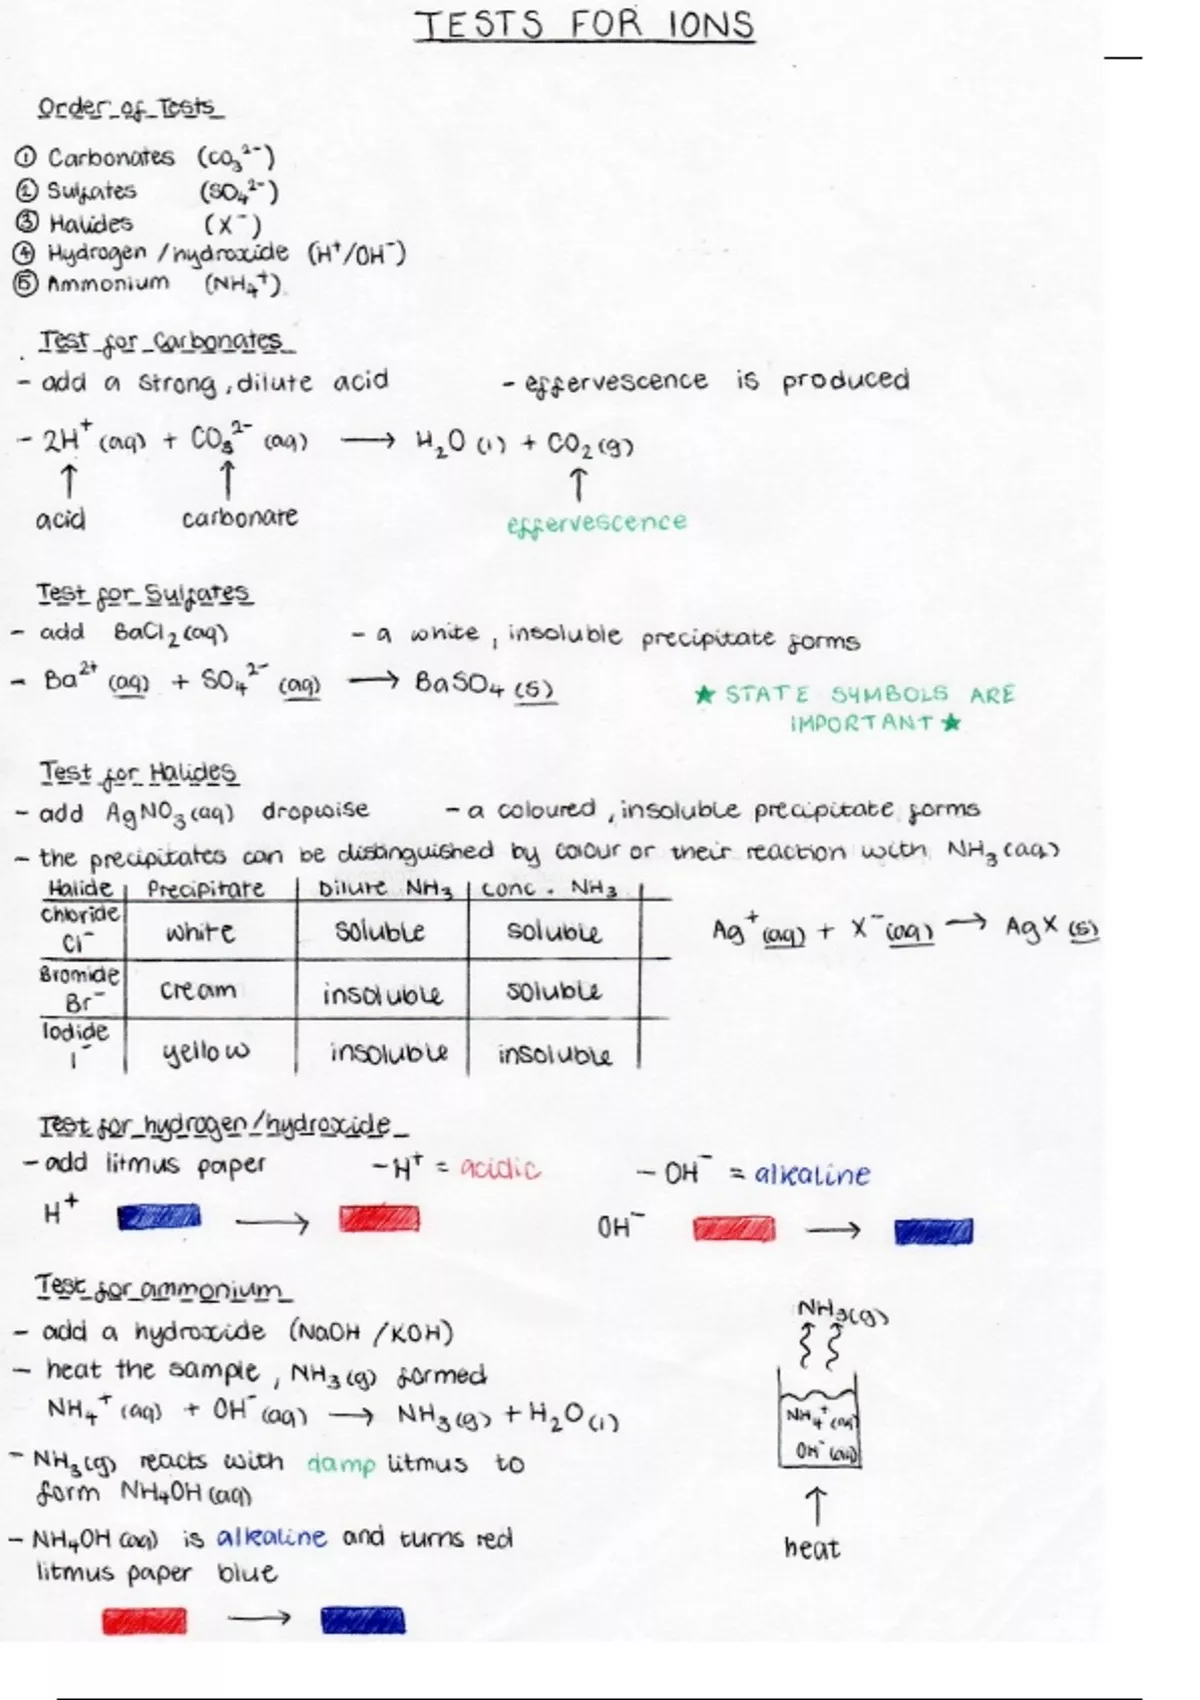 TESTS FOR IONS
Order of Tests
① Carbonates (CO₃²⁻)
② Sulfates (SO₄²⁻)
③ Halides (X⁻)
④ Hydrogen / hydroxide (H⁺/OH⁻)
⑤ Ammonium (NH₄⁺).
Test for Carbonates
- add a strong, dilute acid - effervescence is produced
- 2H⁺ (aq) + CO₃²⁻ (aq) → H₂O (l) + CO₂ (g)
↑ ↑ ↑
acid carbonate effervescence
Test for Sulfates
- add BaCl₂ (aq) - a white, insoluble precipitate forms
- Ba²⁺ (aq) + SO₄²⁻ (aq) → BaSO₄ (s)
★ STATE SYMBOLS ARE
IMPORTANT ★
Test for Halides
- add AgNO₃ (aq) dropwise - a coloured, insoluble precipitate forms
- the precipitates can be distinguished by colour or their reaction with NH₃ (aq)
Halide Precipitate Dilute NH₃ Conc. NH₃
Chloride Cl⁻ white soluble soluble
Bromide Br⁻ cream insoluble soluble
Iodide I⁻ yellow insoluble insoluble
Ag⁺ (aq) + X⁻ (aq) → AgX (s)
Test for hydrogen/hydroxide
- add litmus paper - H⁺ = acidic - OH⁻ = alkaline
H⁺ → OH⁻ →
Test for ammonium
- add a hydroxide (NaOH / KOH)
- heat the sample, NH₃ (g) formed
NH₄⁺ (aq) + OH⁻ (aq) → NH₃ (g) + H₂O (l)
- NH₃ (g) reacts with damp litmus to
form NH₄OH (aq)
- NH₄OH (aq) is alkaline and turns red
litmus paper blue
→
NH₃ (g)
NH₄⁺ (aq)
OH⁻ (aq)
↑
heat